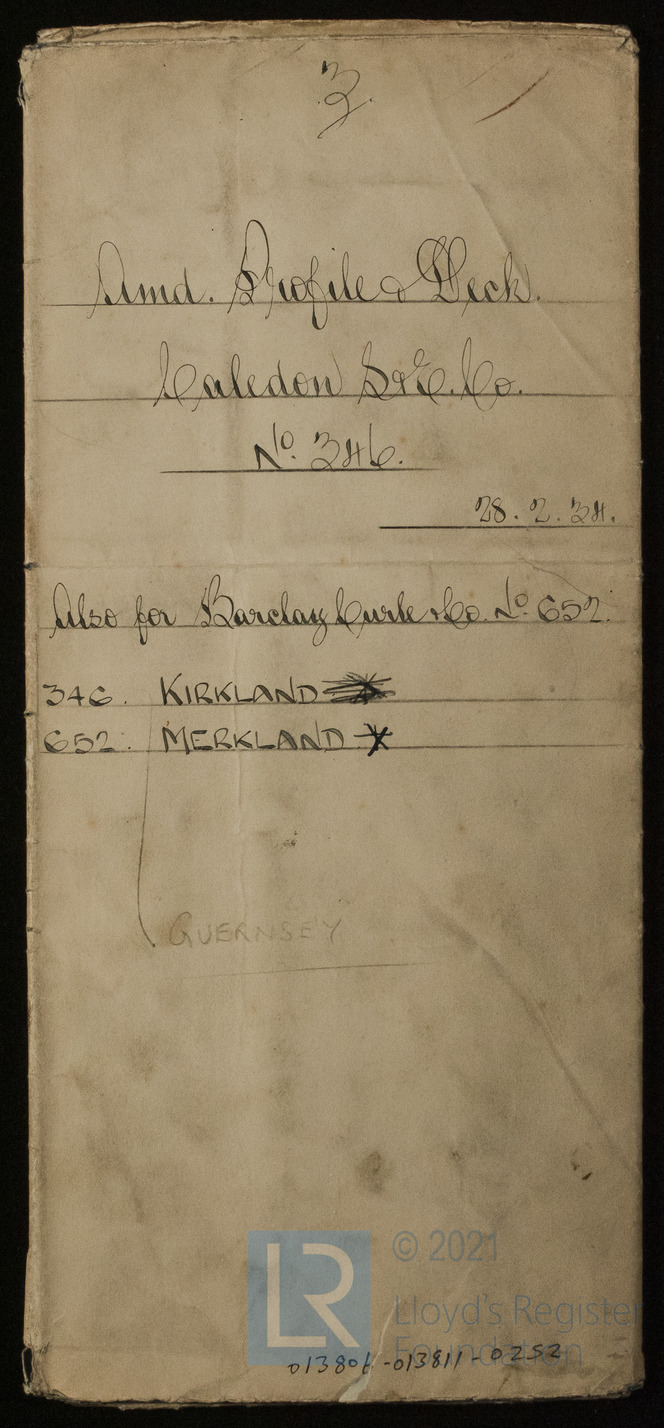 3.
Amd. Profile & Deck.
Caledon S & E. Co.
No. 346.
28.2.34.
Also for Barclay Curle & Co. No. 652.
346. KIRKLAND
652. MERKLAND X
GUERNSEY
LR
© 2021
Lloyd's Register
Foundation
013806-013811-0252